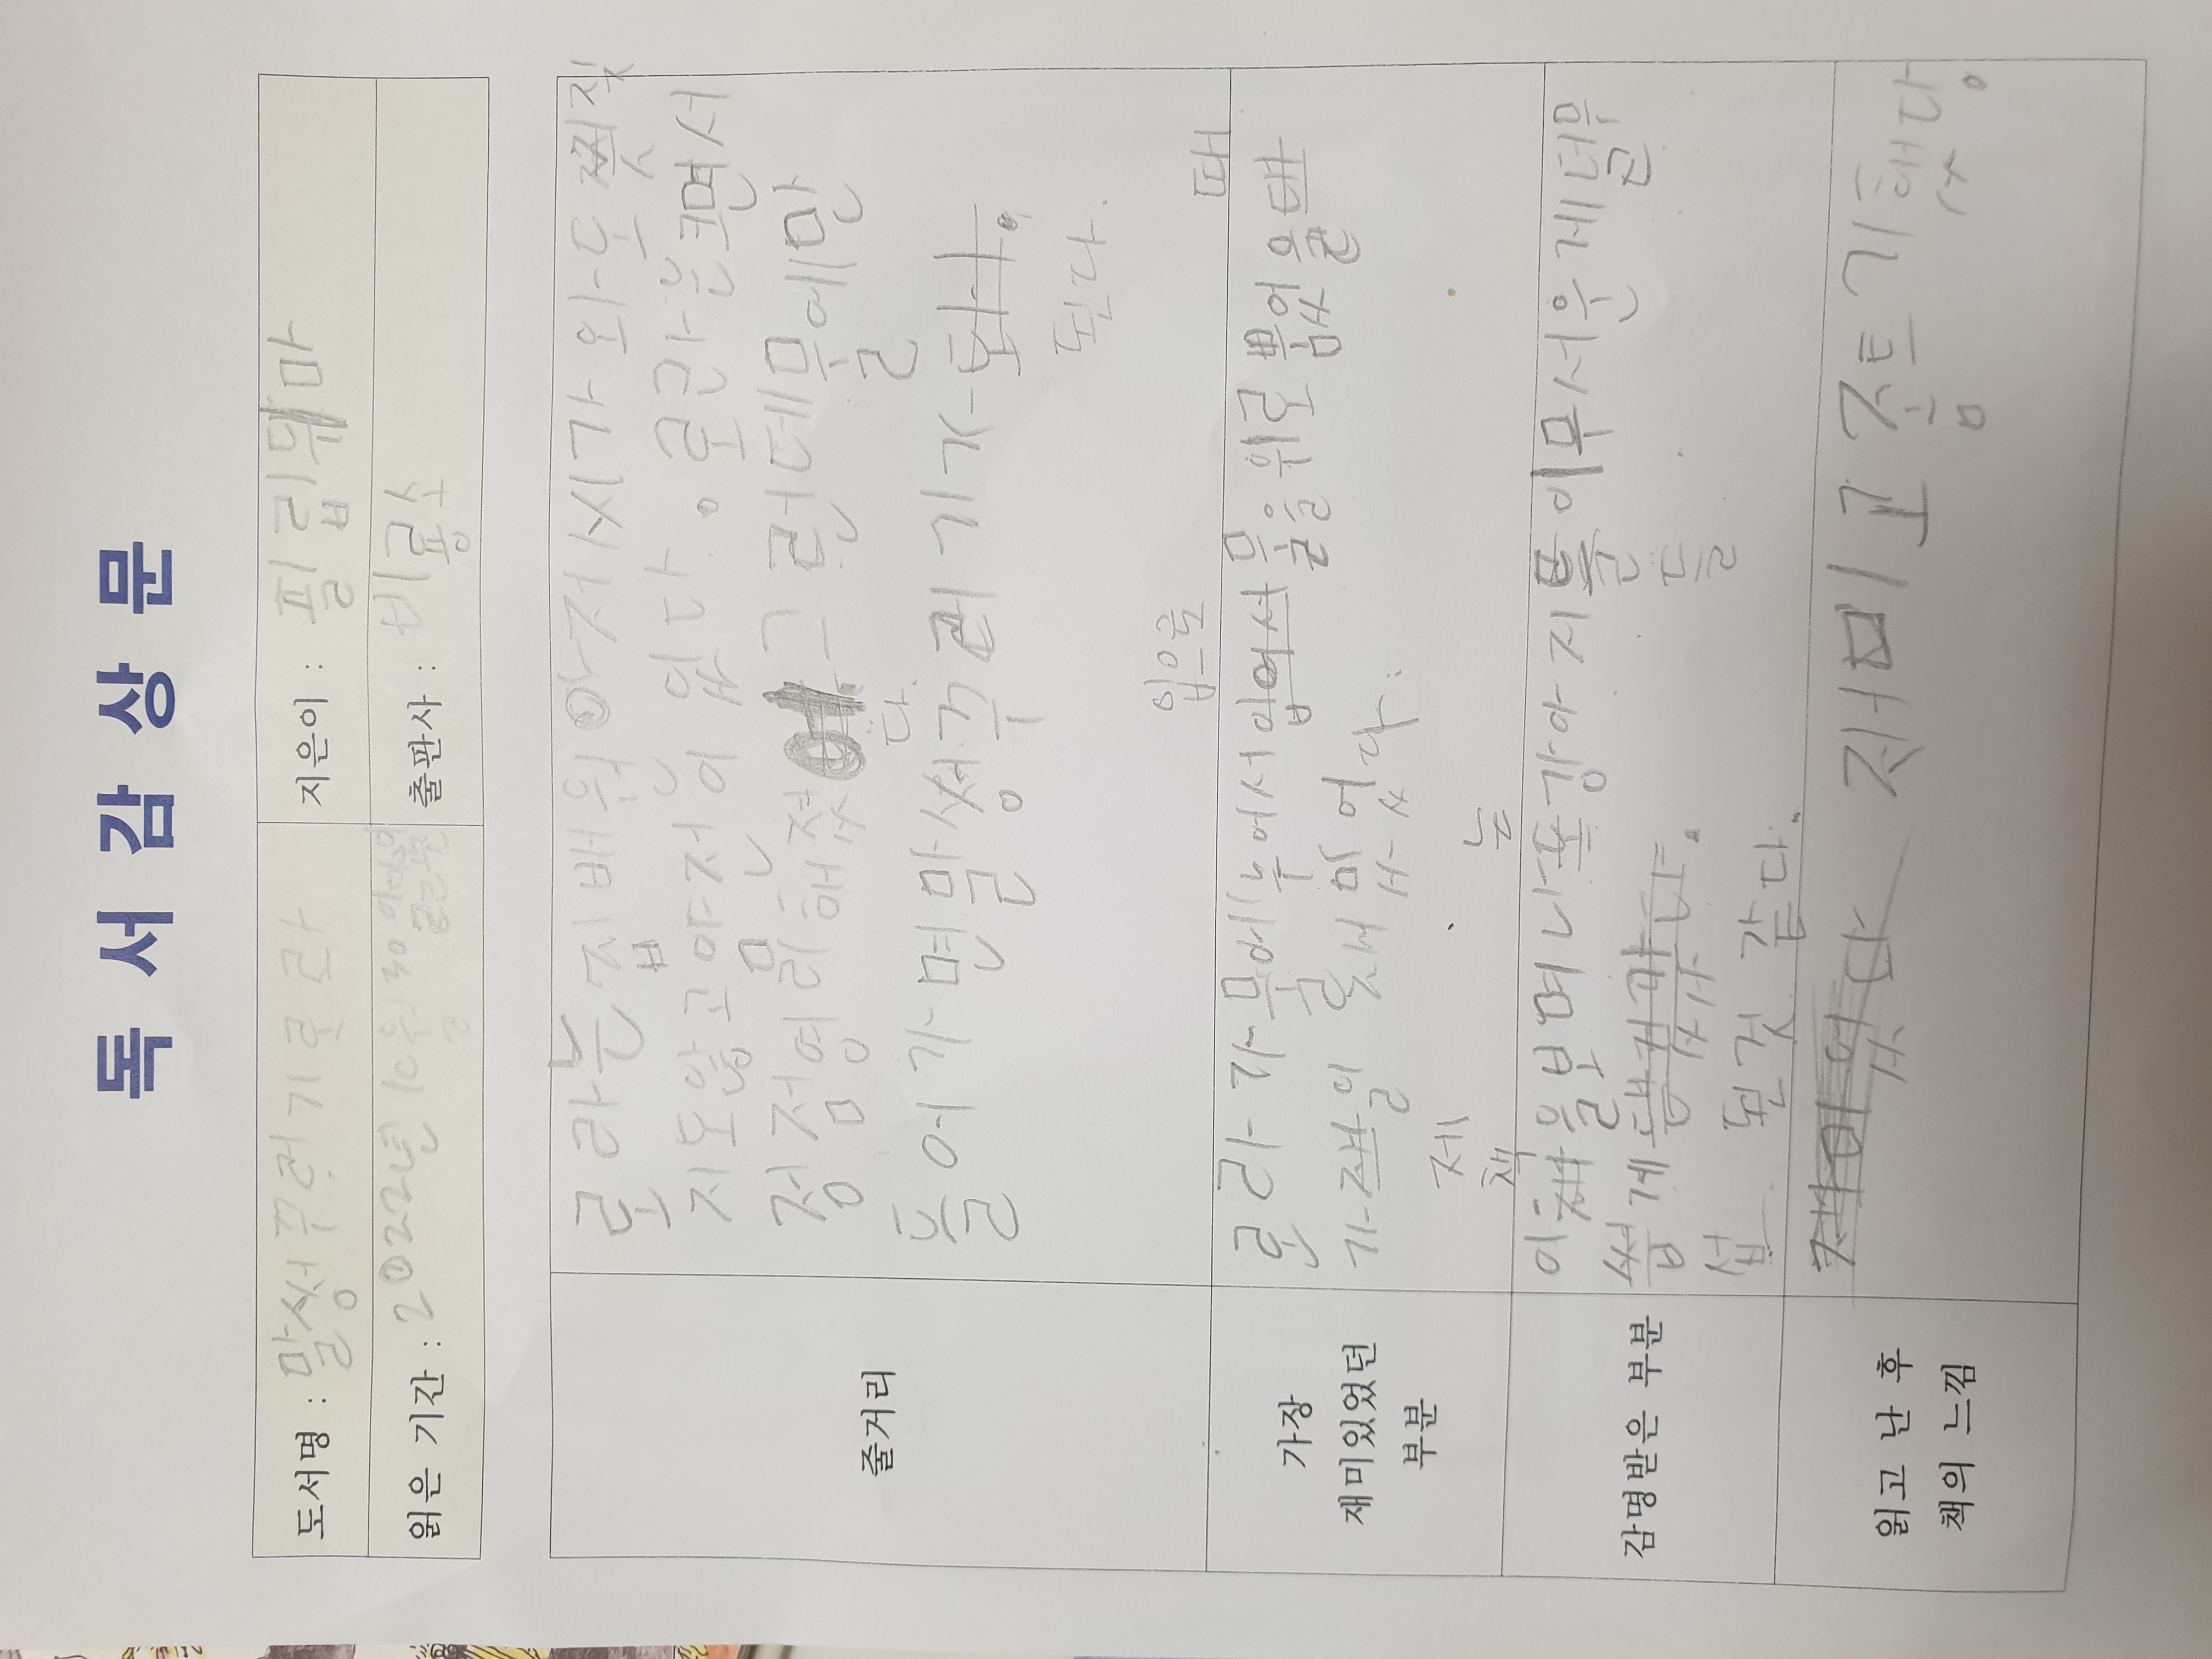 독서감상문
도서명 : 말썽꾸러기로라
지은이 : 필립뒤마
읽은 기간 : 2022년 10월 30일일요일
출판사 : 비룡소
줄거리
로라는집배원아저씨가와도짖
지도않고얌전이였다.로라는크면서
정점영리해졌다.그런데물에만
들어가면말썽꾸러기가
된다.
가장
재미있었던
부분
입으로
때
로라가물에누어서물을위로뿜었을
가일재밌었다.
제
감명받은 부분
책
는
이을보며나강아지이무서운게덜무
게
들
섭 된것 같다.
읽고 난 후
책의 느낌
재미있다 재미고좀트기했다.